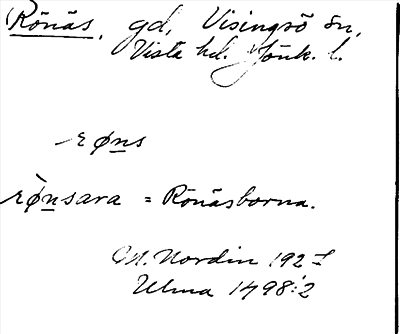 Rönäs, gd, Visingsö sn,
Vista hd. Jönk. l.
røns
rø̀nsara = Rönäsborna.
M. Nordin 192
Ulma 1498:2